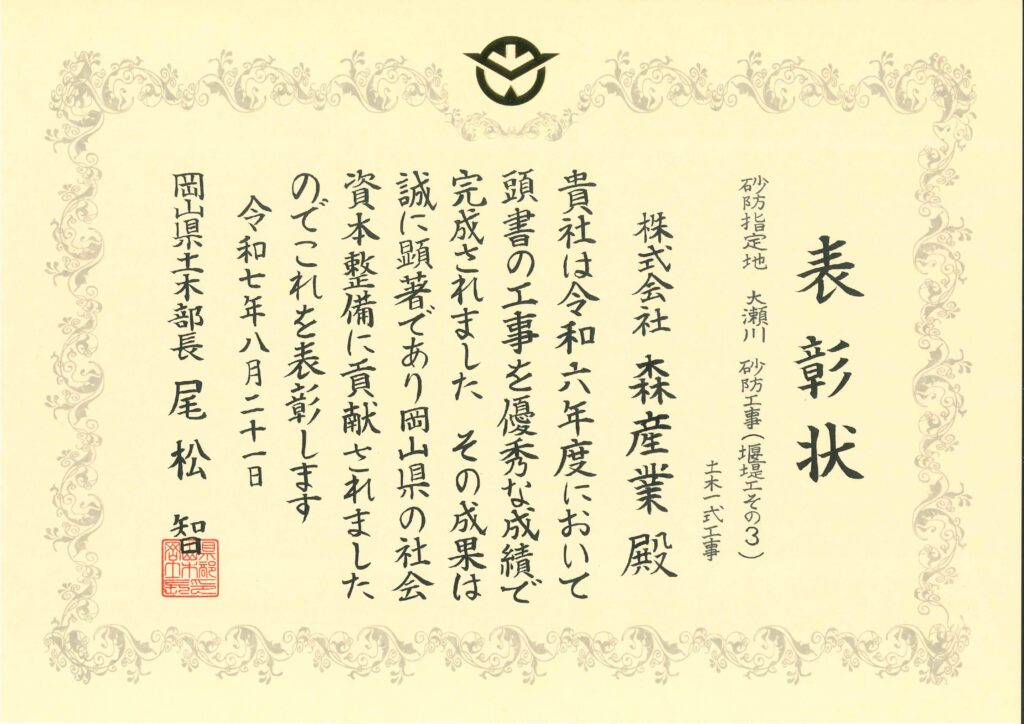 表彰状
砂防指定地 大瀬川 砂防工事(堰堤工その3)
土木一式工事
株式会社 森産業 殿
貴社は令和六年度において
頭書の工事を優秀な成績で
完成されました その成果は
誠に顕著であり岡山県の社会
資本整備に貢献されました
のでこれを表彰します
令和七年八月二十一日
岡山県土木部長 尾松 智